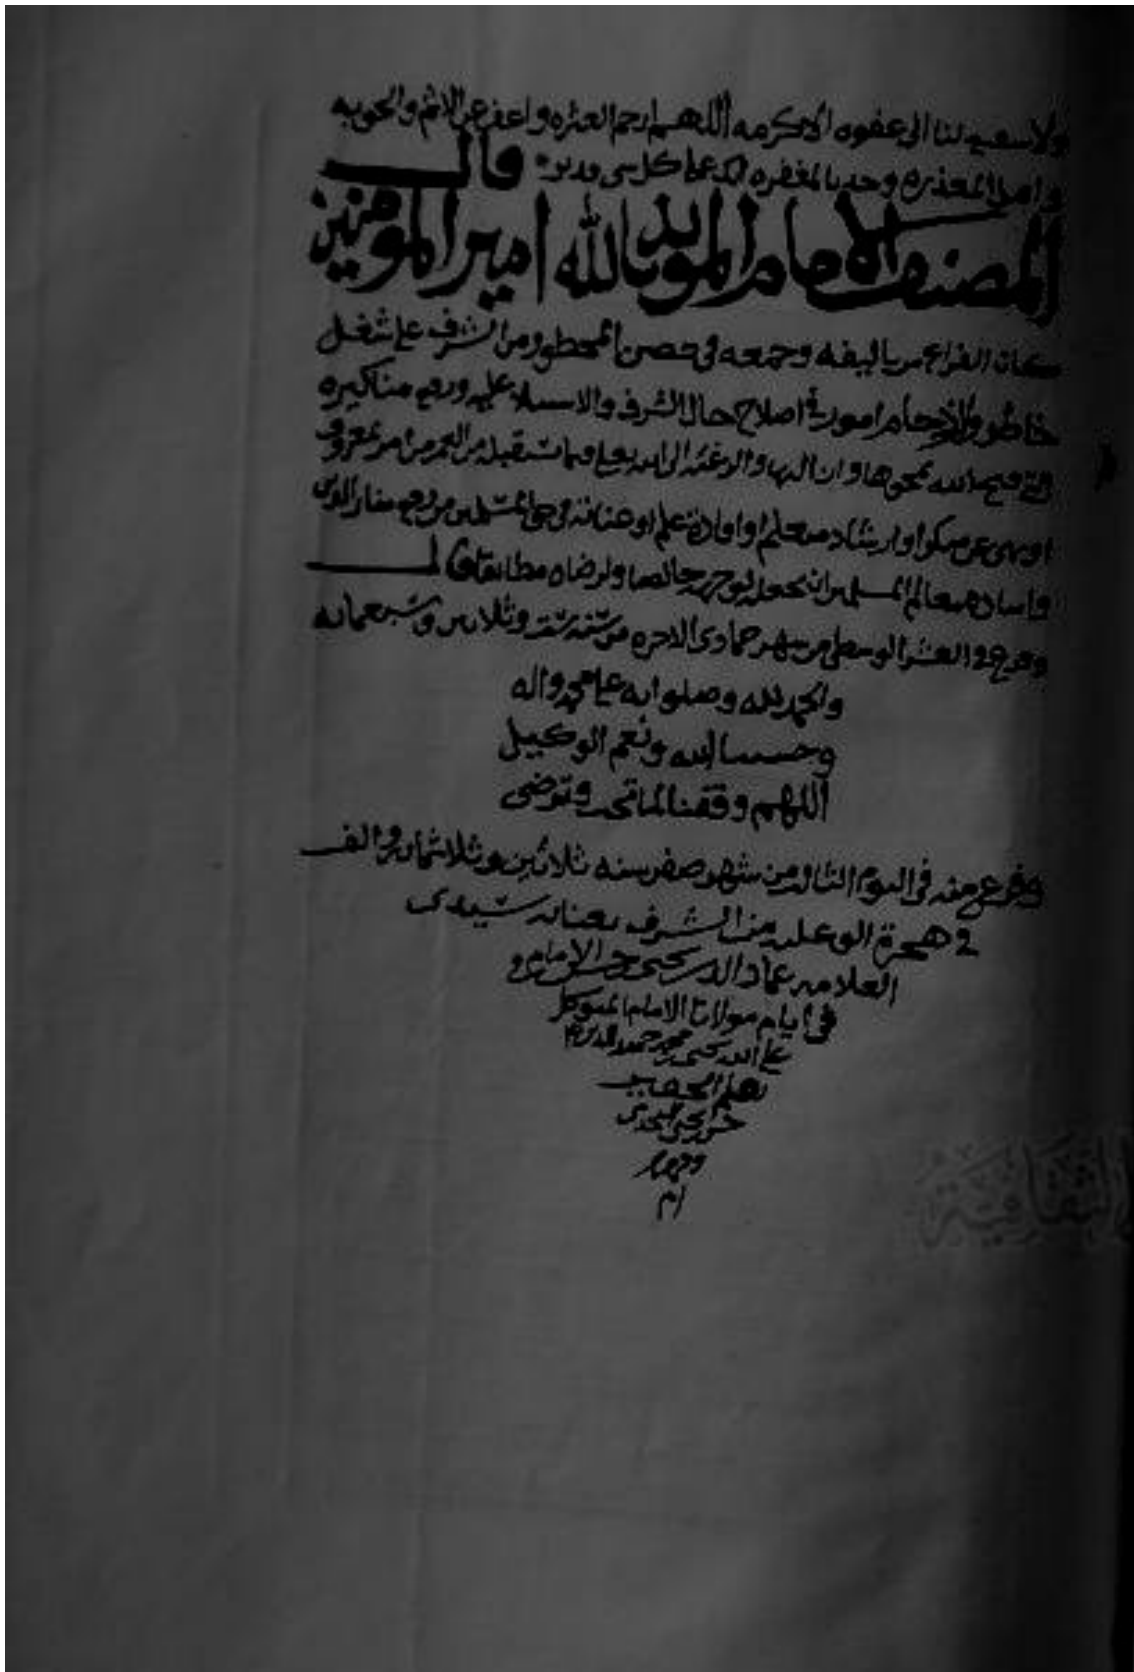 ولا سفيع لنا الى عفوه الا كرمه اللهم ارحم العثره واعف عن الاثم والحوبه
المعذره وجد بالمغفره انك على كل سى قدير قال
المصنف الامام المويد بالله امير المومنين
كان الفراغ من تاليفه وجمعه فى حصن من الشرف على شغل
خاطر امور فى اصلاح حال الشرف والاستيلا عليه ورفع مناكيره
الله والرغبه الى الله فيما نستقبله من العمر من امر بمعروف
او نهى عن منكر او ارشاد متعلم او افادة علم او عنايه فى من رفع منار الدين
معالم المسلمين ان يجعله لوجهه خالصا ولرضاه مطابقا قال
وفرغ فى العشر الوسطى من شهر جمادى الاخره من سنه ست وثلاثين وسبعمائه
والحمد لله وصلواته على محمد واله
وحسبنا الله ونعم الوكيل
اللهم وفقنا لما تحب وترضى
وفرغ منه فى اليوم الثالث من شهر صفر سنه ثلاثين وثلاثمائه والف
فى هجرة من الشرف بعنايه سيدى
العلامه عماد الدين يحيى
فى ايام مولانا الامام المتوكل
على الله يحيى بن محمد حميد الدين
بقلم الحقير